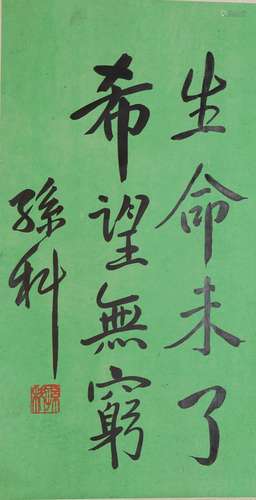 生命未了
希望無窮
孫科